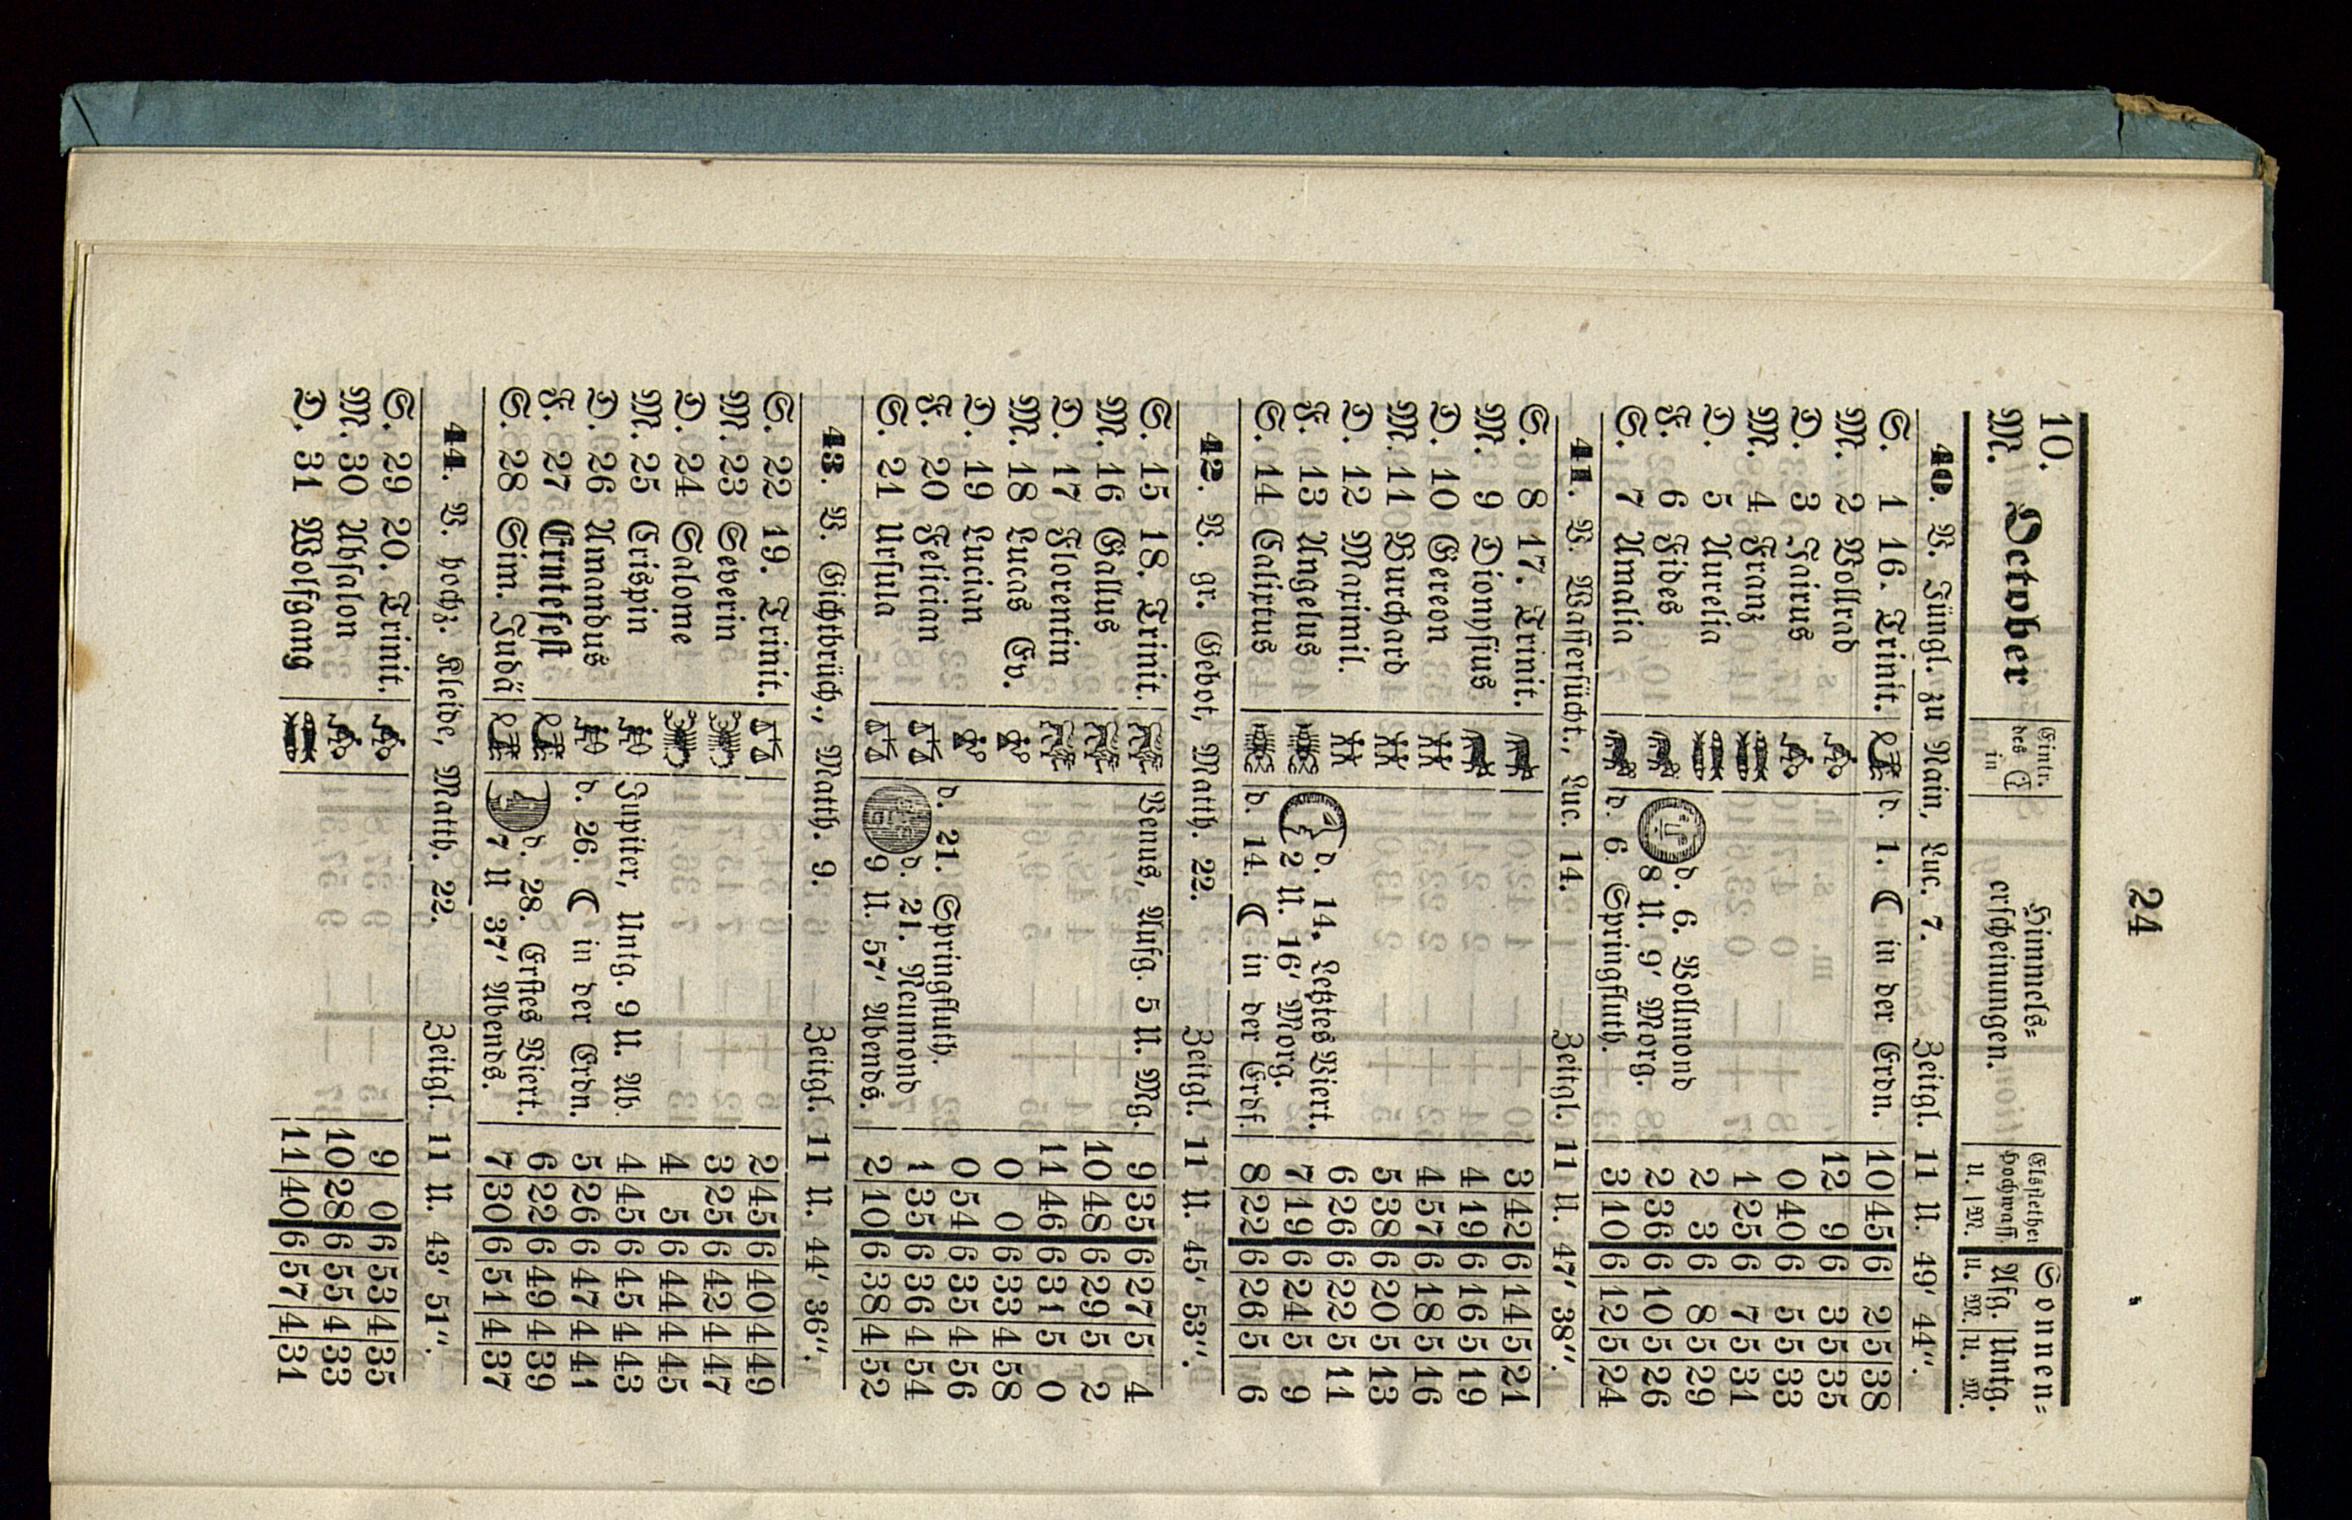 24
10. M. October | Eintr. des ☾ in | Himmels= erscheinungen. | Elsflether Hochwass. U. M. | Sonnen= Afg. U. M. | Untg. U. M.
40. W. Jüngl. zu Nain, Luc. 7. Zeitgl. 11 U. 49′ 44″.
S. 1 16. Trinit. d. 1. ☾ in der Erdn. 10 45 6 2 5 38
M. 2 Vollrad 12 9 6 3 5 35
D. 3 Jairus 0 40 6 5 5 33
M. 4 Franz 1 25 6 7 5 31
D. 5 Aurelia 2 3 6 8 5 29
F. 6 Fides d. 6. Vollmond 8 U. 9′ Morg. 2 36 6 10 5 26
S. 7 Amalia d. 6. Springfluth. 3 10 6 12 5 24
41. W. Wassersücht., Luc. 14. Zeitgl. 11 U. 47′ 38″.
S. 8 17. Trinit. 3 42 6 14 5 21
M. 9 Dionysius 4 19 6 16 5 19
D. 10 Gereon 4 57 6 18 5 16
M. 11 Burchard 5 38 6 20 5 13
D. 12 Maximil. 6 26 6 22 5 11
F. 13 Angelus d. 14. Letztes Viert. 2 U. 16′ Morg. 7 19 6 24 5 9
S. 14 Calixtus d. 14. ☾ in der Erdf. 8 22 6 26 5 6
42. W. gr. Gebot, Matth. 22. Zeitgl. 11 U. 45′ 53″.
S. 15 18. Trinit. Venus, Aufg. 5 U. Mg. 9 35 6 27 5 4
M. 16 Gallus 10 48 6 29 5 2
D. 17 Florentin 11 46 6 31 5 0
M. 18 Lucas Ev. 0 0 6 33 4 58
D. 19 Lucian 0 54 6 35 4 56
F. 20 Felician d. 21. Springfluth. 1 35 6 36 4 54
S. 21 Ursula d. 21. Neumond 9 U. 57′ Abends. 2 10 6 38 4 52
43. W. Gichtbrüch., Matth. 9. Zeitgl. 11 U. 44′ 36″.
S. 22 19. Trinit. 2 45 6 40 4 49
M. 23 Severin 3 25 6 42 4 47
D. 24 Salome 4 5 6 44 4 45
M. 25 Crispin Jupiter, Untg. 9 U. Ab. 4 45 6 45 4 43
D. 26 Amandus d. 26. ☾ in der Erdn. 5 26 6 47 4 41
F. 27 Erntefest d. 28. Erstes Viert. 6 22 6 49 4 39
S. 28 Sim. Judä 7 U 37′ Abends. 7 30 6 51 4 37
44. W. hochz. Kleide, Matth. 22. Zeitgl. 11 U. 43′ 51″.
S. 29 20. Trinit. 9 0 6 53 4 35
M. 30 Absalon 10 28 6 55 4 33
D. 31 Wolfgang 11 40 6 57 4 31